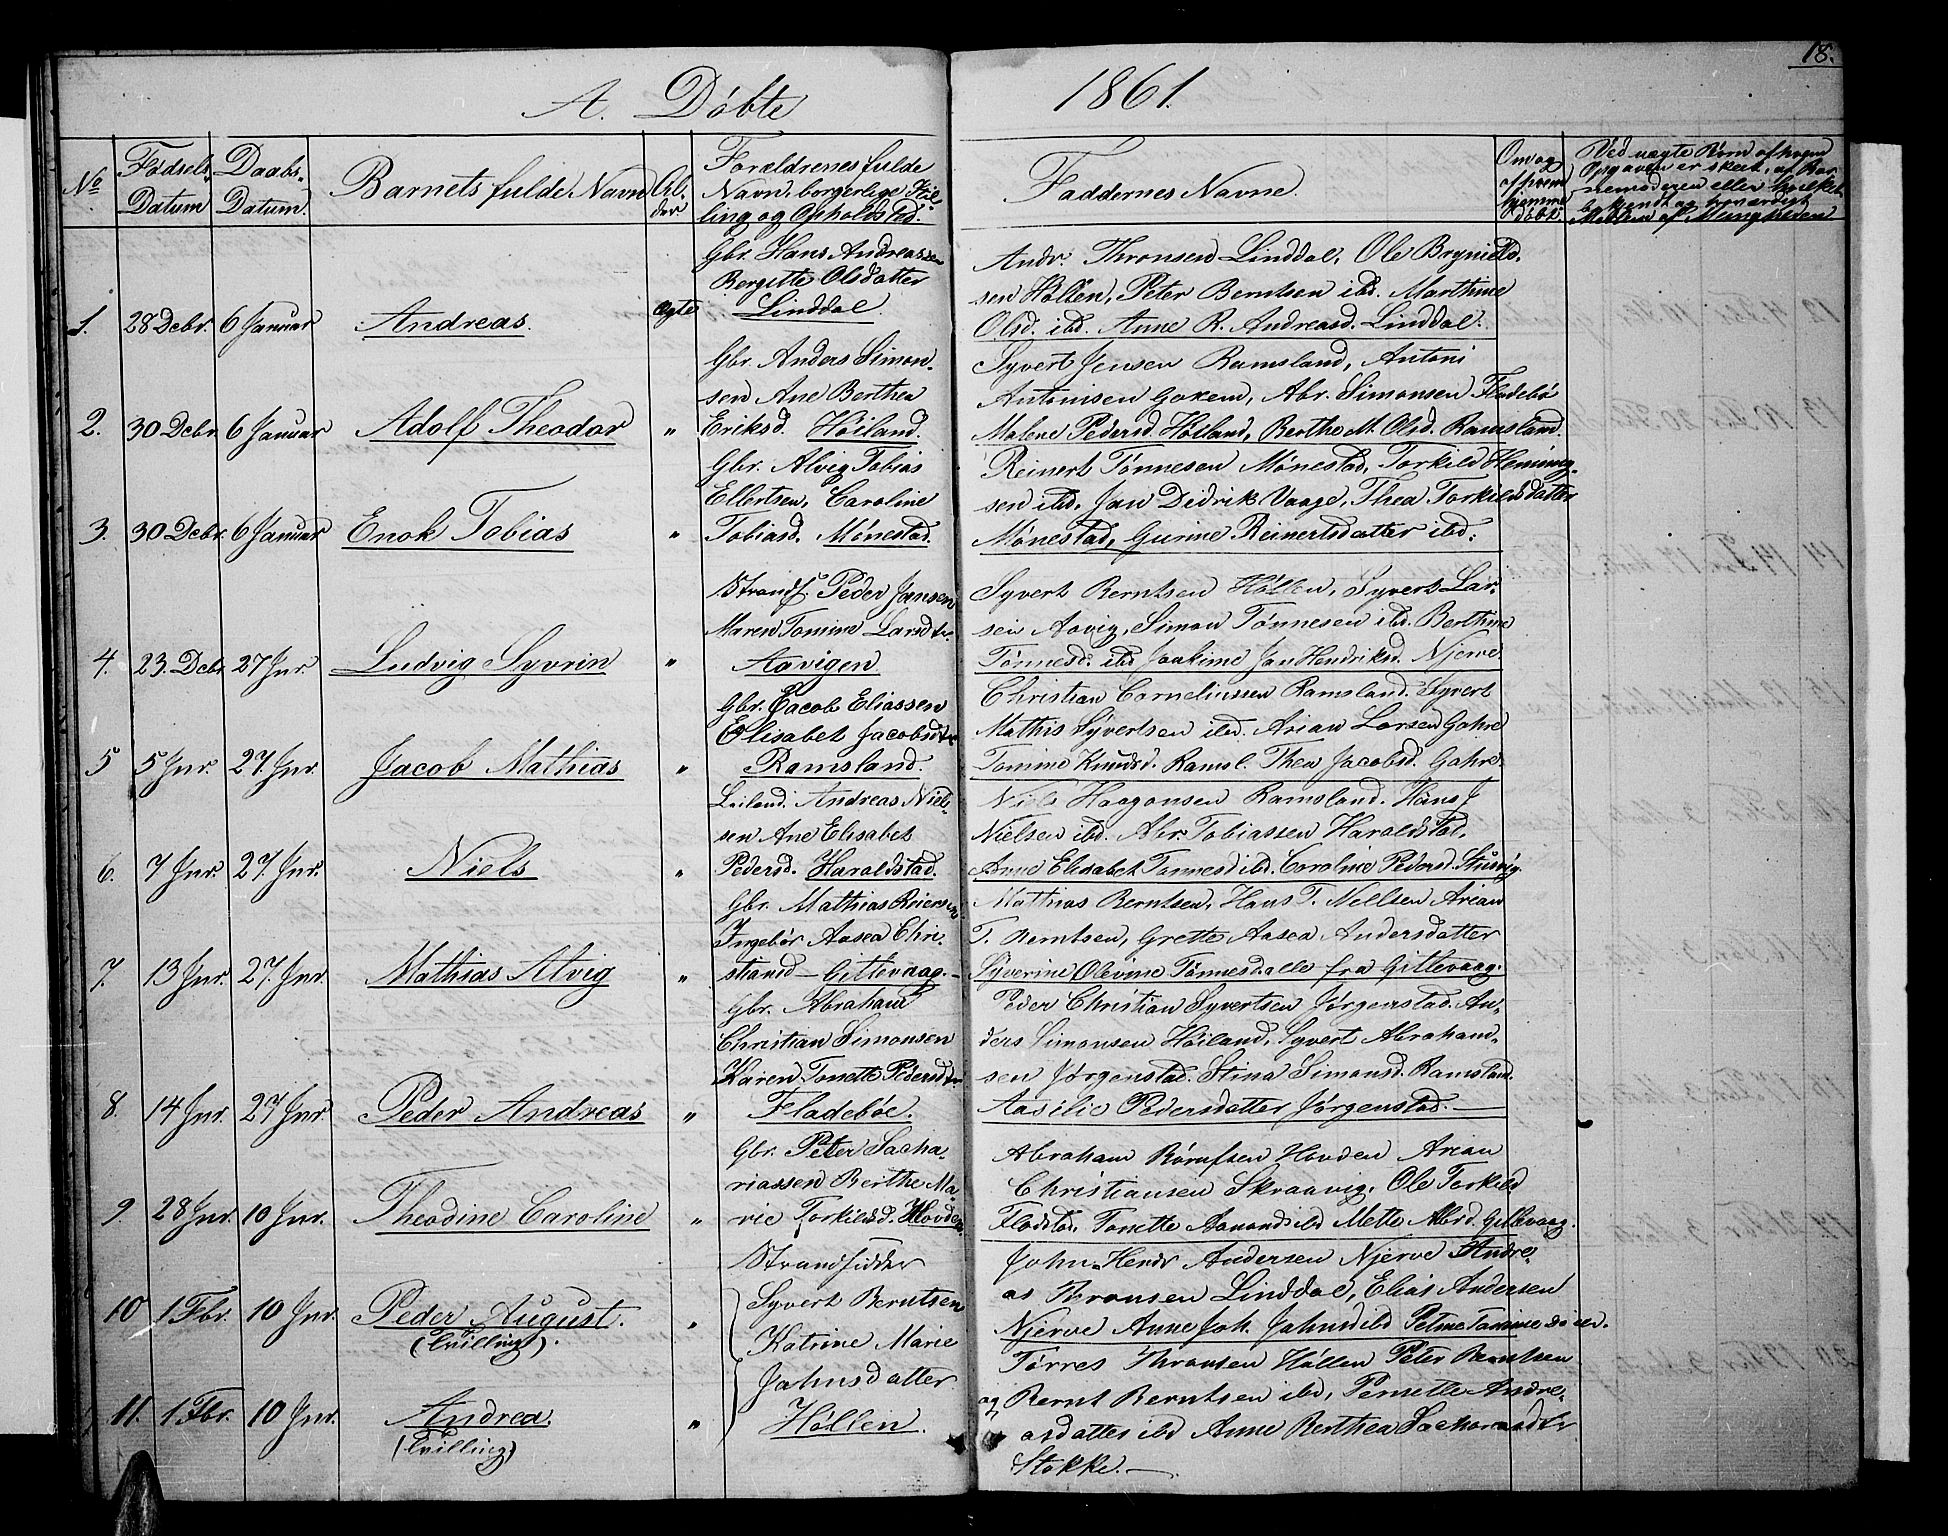 18.
A. Døbte 1861.
No
Fødsels Datum
Daabs Datum.
Barnets fulde Navn
Forældrenes fulde
Navn, borgerlige Stil-
ling og Opholdsted.
Faddernes Navne.
Om og
af hvem
hjemme
døbt.
Ved uægte Børn af hvem
Opgaven er skeet, af Bar-
nemoderen eller
1. 28 Debr. 6 Januar Andreas. ægte
Gbr. Hans Andreassen
Bergitte Olsdatter
Linddal
Andr. Thronsen Linddal, Ole Bryniels-
sen Høllen, Peter Berntsen ibd. Marthine
Olsd. ibd. Anne R. Andreasd. Linddal.
2. 30 Debr. 6 Januar Adolf Theodor "
Gbr. Anders Simon-
sen Ane Berthea
Eriksd. Høiland.
Syvert Jensen Ramsland, Antoni
Antonisen Goksem, Abr. Simonsen Fladebø
Malene Pedersd. Høiland, Berthe M. Olsd. Ramsland.
3. 30 Debr. 6 Januar Enok Tobias "
Gbr. Alvig Tobias
Ellertsen, Caroline
Tobiasd. Mønestad.
Reinert Tønnesen Mønestad, Torkild Heming-
sen ibd. Jan Didrik Vaage, Thea Torkildsdatter
Mønestad, Gurine Reinertsdatter ibd.
4. 23. Debr 27 Jnr. Ludvig Syvrin "
Strandf. Peder Jansen
Maren Tomine Larsdtr.
Aavigen
Syvert Berntsen Høllen, Syvert Lar-
sen Aavig, Simon Tønnesen ibd. Berthine
Tønnesd. ibd Joakime Jan Hendriksd. Njerve
5 5 Jnr. 27. Jnr. Jacob Mathias "
Gbr. Jacob Eliassen
Elisabet Jacobsdtr
Ramsland.
Christian Corneliussen Ramsland. Syvert
Mathis Syvertsen ibd. Arian Larsen Gahre
Tomine Knudsd. Ramsl. Thea Jacobsd. Gahre.
6. 7 Jnr. 27. Jnr. Niels "
Leiland. Andreas Niel-
sen Ane Elisabet
Pedersd. Haraldstad.
Niels Haagonsen Ramsland. Hans J
Nielsen ibd. Abr. Tobiassen Haraldstad.
Anne Elisabet Tønnesd ibd. Caroline Pedersd.
7. 13 Jnr. 27. Jnr. Mathias Alvig "
Gbr. Mathias Reiersen
Ingebor Aasea Chri-
stiansd - Gitlevaag.
Mathias Berntsen, Hans T. Nellsen Arian
T. Berntsen, Grette Aasea Andersdatter
Syverine Olevine Tønnesd alle fra Gitlevaag.
8. 14 Jnr. 27 Jnr. Peder Andreas "
Gbr. Abraham
Christian Simonsen
Karen Tonette Pedersdtr
Fladebøe.
Peder Christian Syvertsen Jørgenstad. An-
ders Simonsen Høiland, Syvert Abraham-
sen Jørgenstad. Stina Simonsd. Ramsland.
Aasilie Pedersdatter Jørgenstad.
9. 28 Jnr. 10 Jnr. Theodine Caroline "
Gbr. Peter Sacha-
riassen Berthe Ma-
rie Torkildsd. Hovden.
Abraham Rørufsen Hovden Arian
Christiansen Skraavig, Ole Torkild
Flodstad, Tonette Aanonds ibd Mette Abrd. Gitlevaag.
10 1 Fbr. 10 Jnr. Peder August.
(Tvilling). "
Strandsidder
Syvert Berntsen
Katrine Marie
Jahnsdatter
Høllen.
John Hendr Andersen Njerve Andre-
as Thronsen Linddal, Elias Andersen
Njerve Anne Joh. Jahnsd ibd Petrine Tomine
11. 1 Fbr. 10 Jnr. Andrea.
(Tvilling) "
Tørres Thronsen Høllen Peter Berntsen
og Bernt Berntsen ibd, Pernette Andre-
asdatter ibd Anne Berthea Sachariasdtr
Stokke.